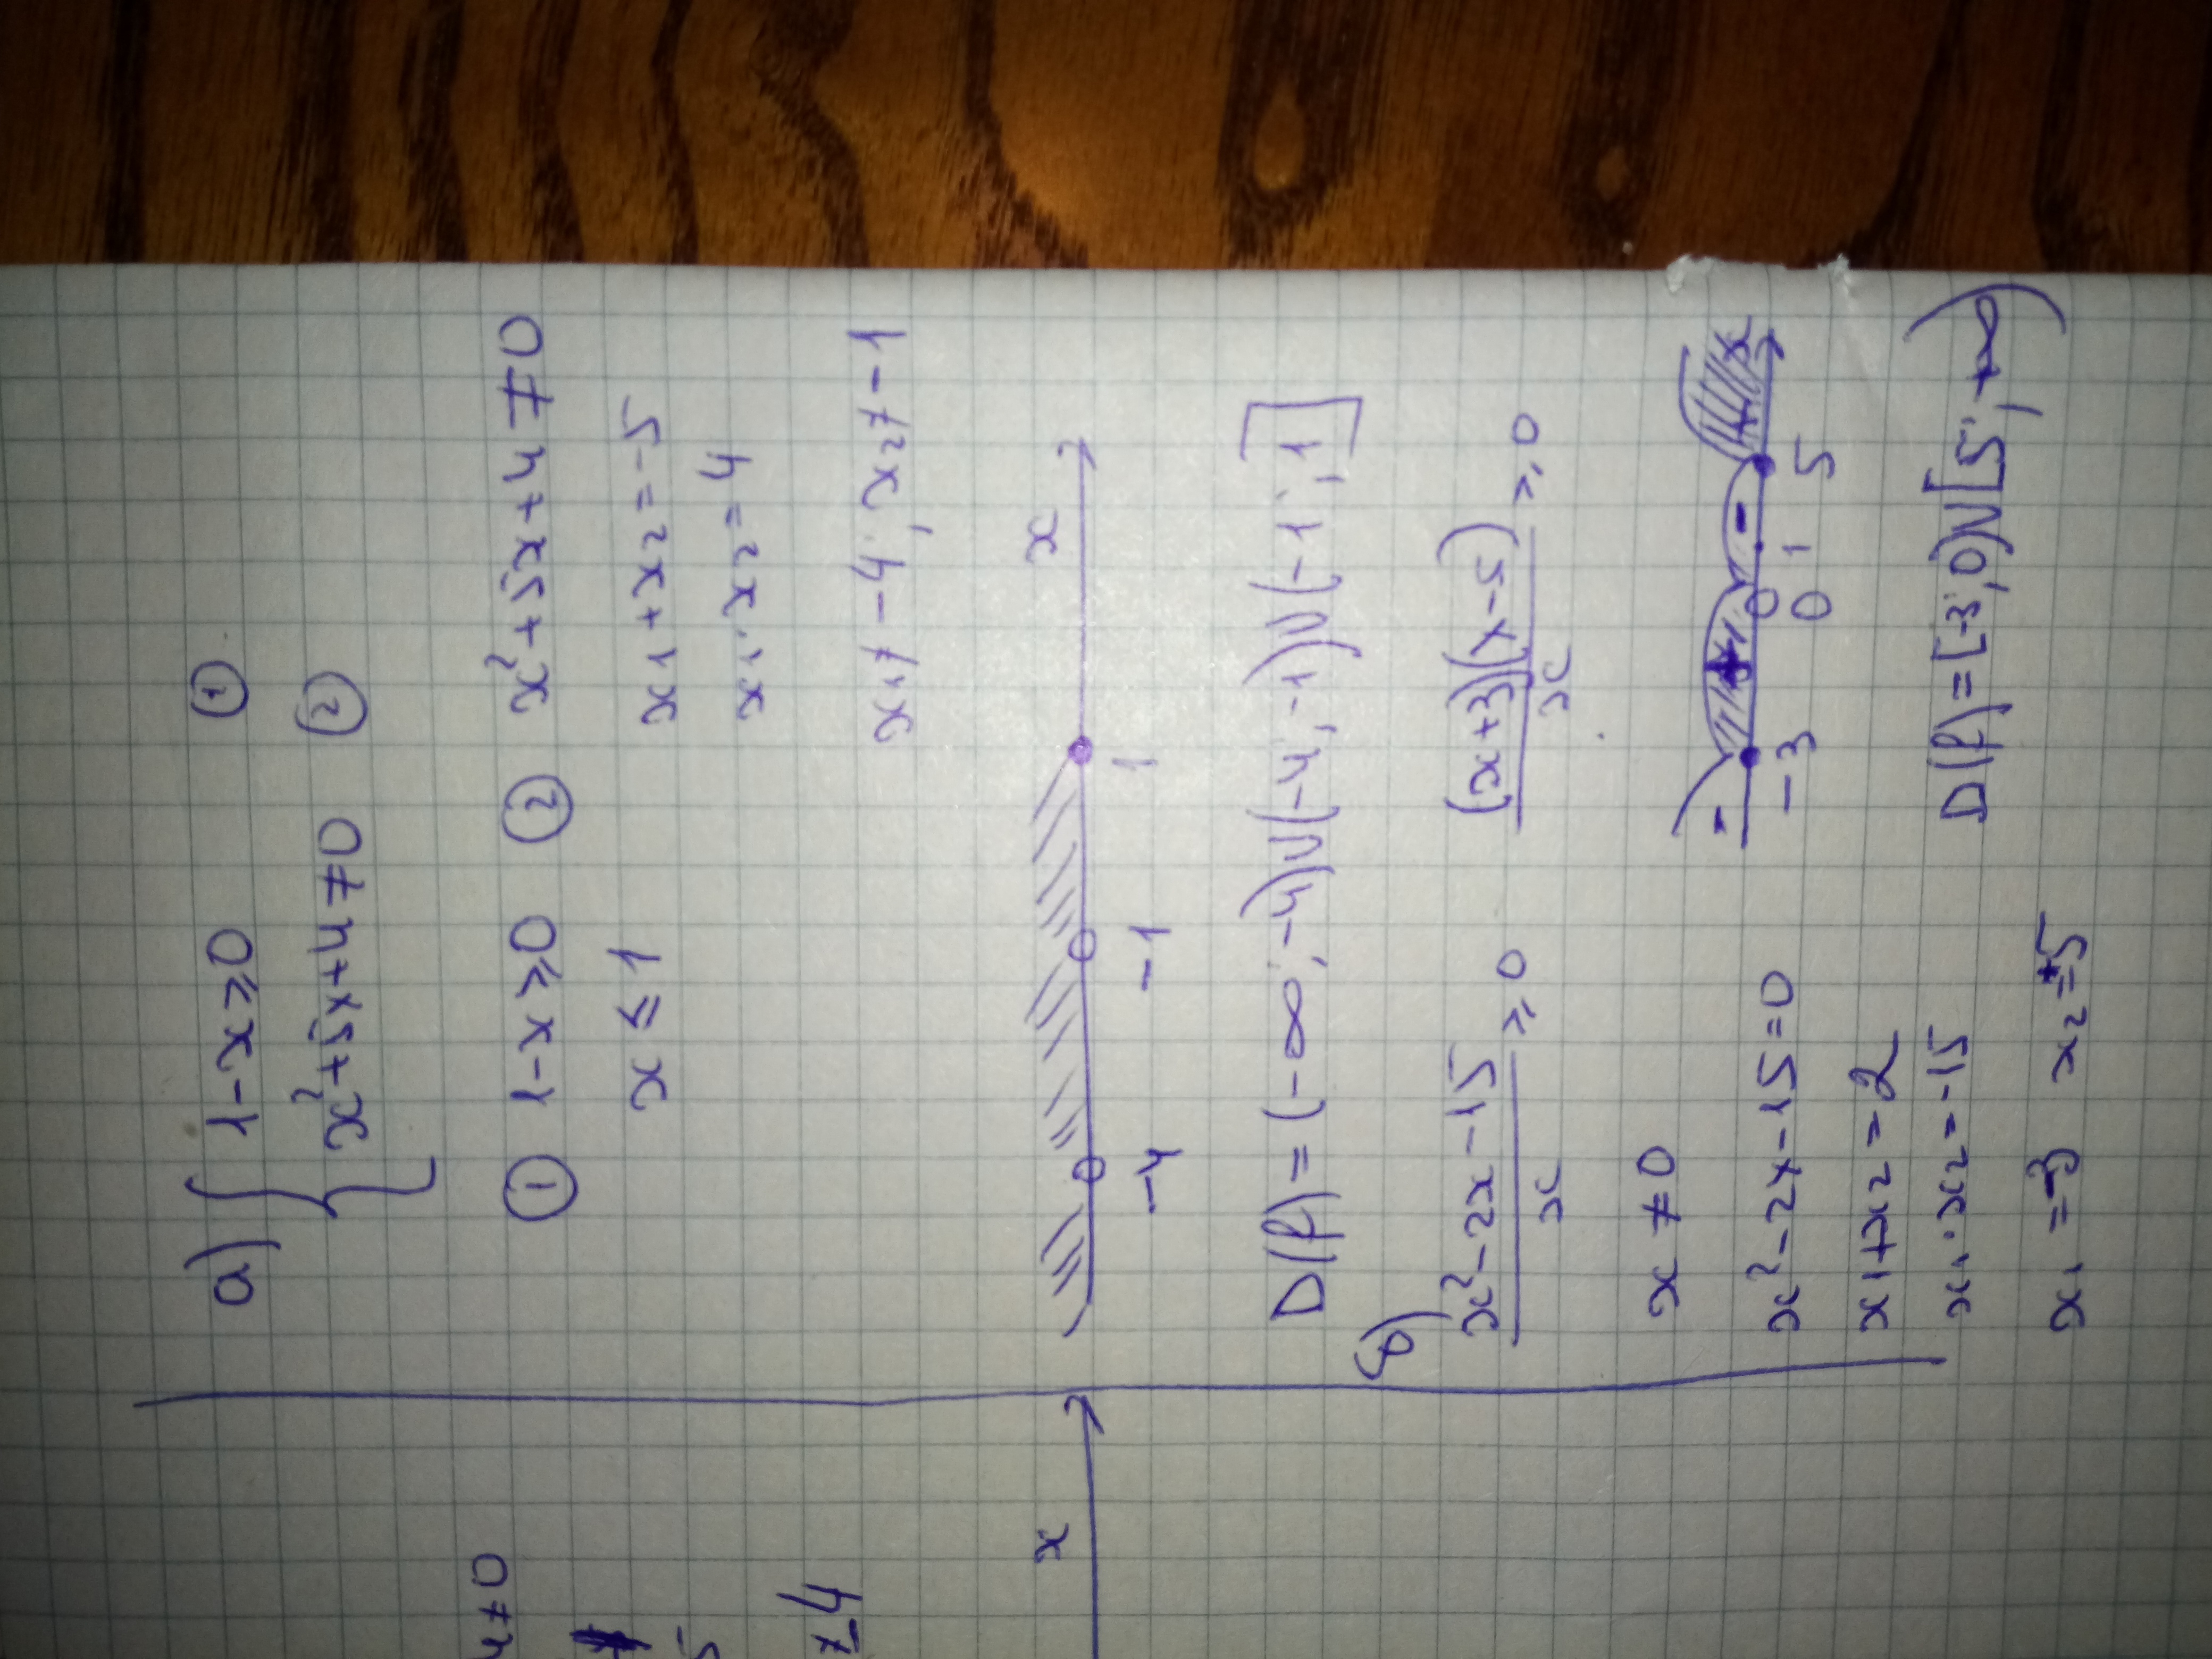 a) { 1-x≥0 ①
x²+5x+4≠0 ②
① 1-x≥0 ② x²+5x+4≠0
x≤1 x₁+x₂=-5
x₁·x₂=4
x₁≠-4; x₂≠-1
x
-4 -1 1
D(f)=(-∞;-4)∪(-4;-1)∪(-1;1]
б) x²-2x-15/x ≥0 (x+3)(x-5)/x ≥0
x≠0
- + - + x
-3 0 1 5
x²-2x-15=0
x₁+x₂=2
x₁·x₂=-15
D(f)=[-3;0)∪[5;+∞)
x₁=-3 x₂=+5
≠0
≠4
x